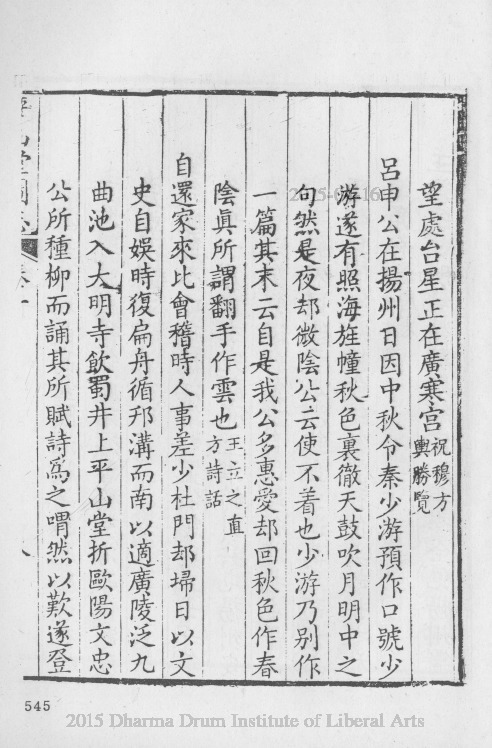 望處台星正在廣寒宮祝穆方輿勝覽
呂申公在揚州日因中秋令秦少游預作口號少
游遂有照海旌幢秋色裏徹天鼓吹月明中之
句然是夜却微陰公云使不着也少游乃别作
一篇其末云自是我公多惠愛却回秋色作春
陰眞所謂翻手作雲也王立之直方詩話
自還家來比會稽時人事差少杜門却埽日以文
史自娛時復扁舟循邗溝而南以適廣陵泛九
曲池入大明寺飮蜀井上平山堂折歐陽文忠
公所種柳而誦其所賦詩爲之喟然以歎遂登
平山堂圖志
卷十
八
545
2015 Dharma Drum Institute of Liberal Arts